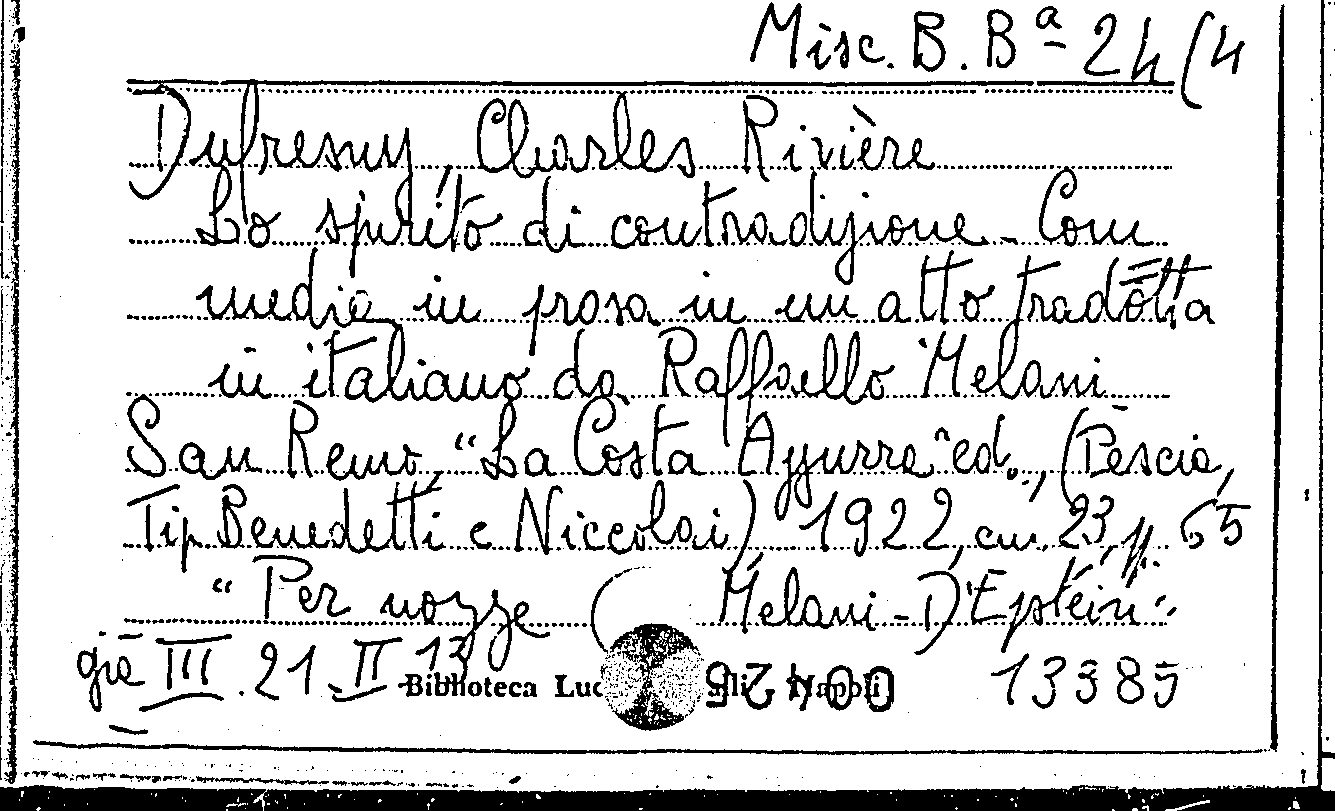 Misc. B. Bª 24/4
Dufresny, Charles Rivière
Lo spirito di contradizione. Com
media in prosa in un atto tradotta
in italiano da Raffaello Melani
San Remo, "La Costa Azzurra" ed., (Pescia,
Tip Benedetti e Niccolai), 1922, cm. 23, pp. 65
"Per nozze Melani-D'Epstein".
già III. 21. II 13
Biblioteca Luc Napoli 00426 13385